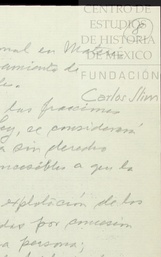 CENTRO DE
ESTUDIOS
DE HISTORIA
DE MÉXICO
FUNDACIÓN
Carlos Slim
8
onal en Materia
ramiento de
las fracciones
ley, se considerará
a sin derechos
ncesibles a que la
explotación de los
dez por concesión
a persona;